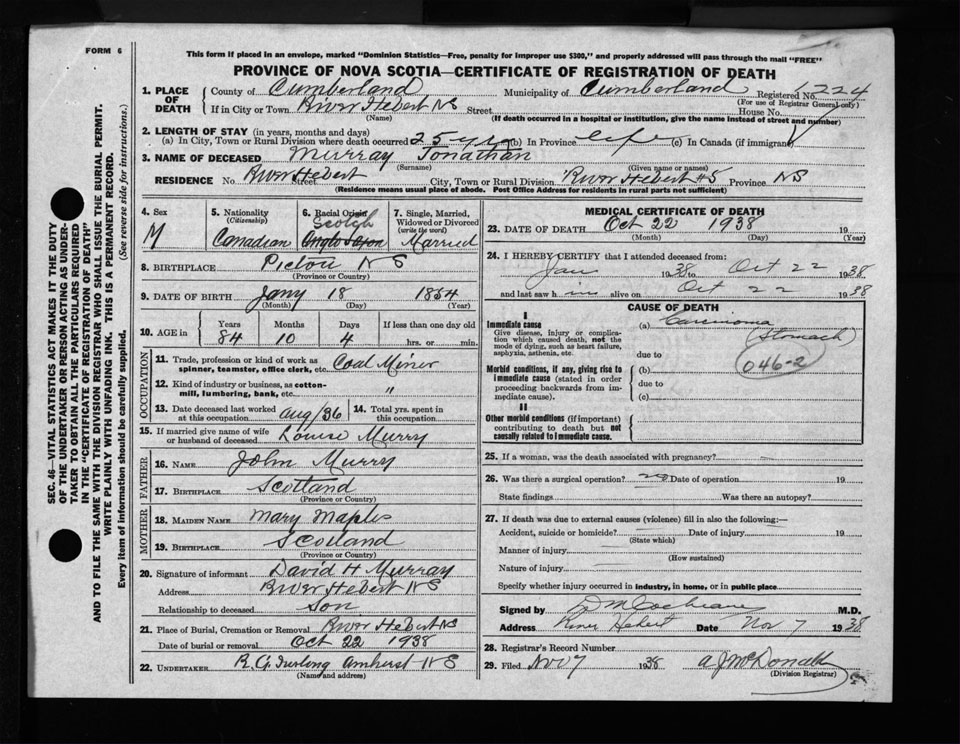 FORM 6
This form if placed in an envelope, marked "Dominion Statistics—Free, penalty for improper use $300," and properly addressed will pass through the mail "FREE"
PROVINCE OF NOVA SCOTIA—CERTIFICATE OF REGISTRATION OF DEATH
1. PLACE OF DEATH
County of Cumberland Municipality of Cumberland Registered No. 224
(For use of Registrar General only)
If in City or Town River Hebert NS Street House No.
(Name) (If death occurred in a hospital or institution, give the name instead of street and number)
2. LENGTH OF STAY (in years, months and days)
(a) In City, Town or Rural Division where death occurred 25 yrs (b) In Province life (c) In Canada (if immigrant)
3. NAME OF DECEASED Murray Jonathan
(Surname) (Given name or names)
RESIDENCE No River Hebert Street City, Town or Rural Division River Hebert #5 Province NS
(Residence means usual place of abode. Post Office Address for residents in rural parts not sufficient)
4. Sex
M
5. Nationality
(Citizenship)
Canadian
6. Racial Origin
Scotch
Anglo Saxon
7. Single, Married, Widowed or Divorced
(write the word)
Married
8. BIRTHPLACE Pictou NS
(Province or Country)
9. DATE OF BIRTH Jany 18 1854
(Month) (Day) (Year)
10. AGE in
Years Months Days If less than one day old
84 10 4 hrs. or min.
OCCUPATION
11. Trade, profession or kind of work as spinner, teamster, office clerk, etc. Coal Miner
12. Kind of industry or business, as cotton-mill, lumbering, bank, etc. "
13. Date deceased last worked at this occupation Aug/36
14. Total yrs. spent in this occupation
15. If married give name of wife or husband of deceased Louise Murry
FATHER
16. NAME John Murry
17. BIRTHPLACE Scotland
(Province or Country)
MOTHER
18. MAIDEN NAME Mary Maples
19. BIRTHPLACE Scotland
(Province or Country)
20. Signature of informant David H Murray
Address River Hebert NS
Relationship to deceased Son
21. Place of Burial, Cremation or Removal River Hebert NS
Date of burial or removal Oct 22 1938
22. UNDERTAKER R. G. Furlong Amherst NS
(Name and address)
MEDICAL CERTIFICATE OF DEATH
23. DATE OF DEATH Oct 22 1938 19
(Month) (Day) (Year)
24. I HEREBY CERTIFY that I attended deceased from:
Jan 1938 to Oct 22 1938
and last saw h im alive on Oct 22 1938
CAUSE OF DEATH
I
Immediate cause
Give disease, injury or complication which caused death, not the mode of dying, such as heart failure, asphyxia, asthenia, etc.
(a) Carcinoma
(Stomach)
due to
Morbid conditions, if any, giving rise to immediate cause (stated in order proceeding backwards from immediate cause).
(b) 046-2
due to
(c)
II
Other morbid conditions (if important) contributing to death but not causally related to immediate cause.
25. If a woman, was the death associated with pregnancy?
26. Was there a surgical operation? no Date of operation 19
State findings Was there an autopsy?
27. If death was due to external causes (violence) fill in also the following:—
Accident, suicide or homicide? Date of injury 19
(State which)
Manner of injury
(How sustained)
Nature of injury
Specify whether injury occurred in industry, in home, or in public place
Signed by D M Cochrane M.D.
Address River Hebert Date Nov 7 1938
28. Registrar's Record Number
29. Filed Nov 7 1938 A J McDonald
(Division Registrar)
SEC. 46—VITAL STATISTICS ACT MAKES IT THE DUTY
OF THE UNDERTAKER OR PERSON ACTING AS UNDER-
TAKER TO OBTAIN ALL THE PARTICULARS REQUIRED
IN THE "CERTIFICATE OF REGISTRATION OF DEATH"
AND TO FILE THE SAME WITH THE DIVISION REGISTRAR WHO SHALL ISSUE THE BURIAL PERMIT.
WRITE PLAINLY WITH UNFADING INK. THIS IS A PERMANENT RECORD.
Every item of information should be carefully supplied. (See reverse side for instructions.)